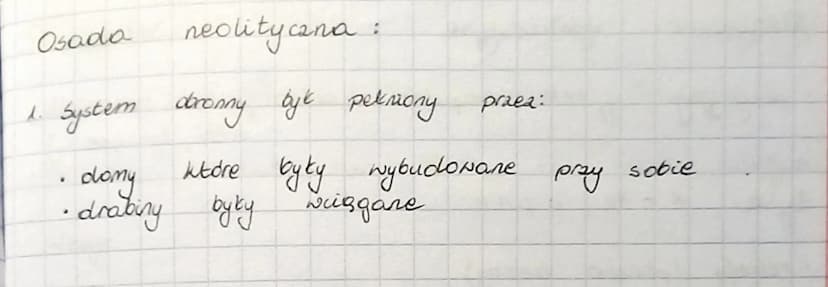 Osada neolityczna:
1. System obronny był pełniony przez:
• domy które były wybudowane przy sobie.
• drabiny były wciągane